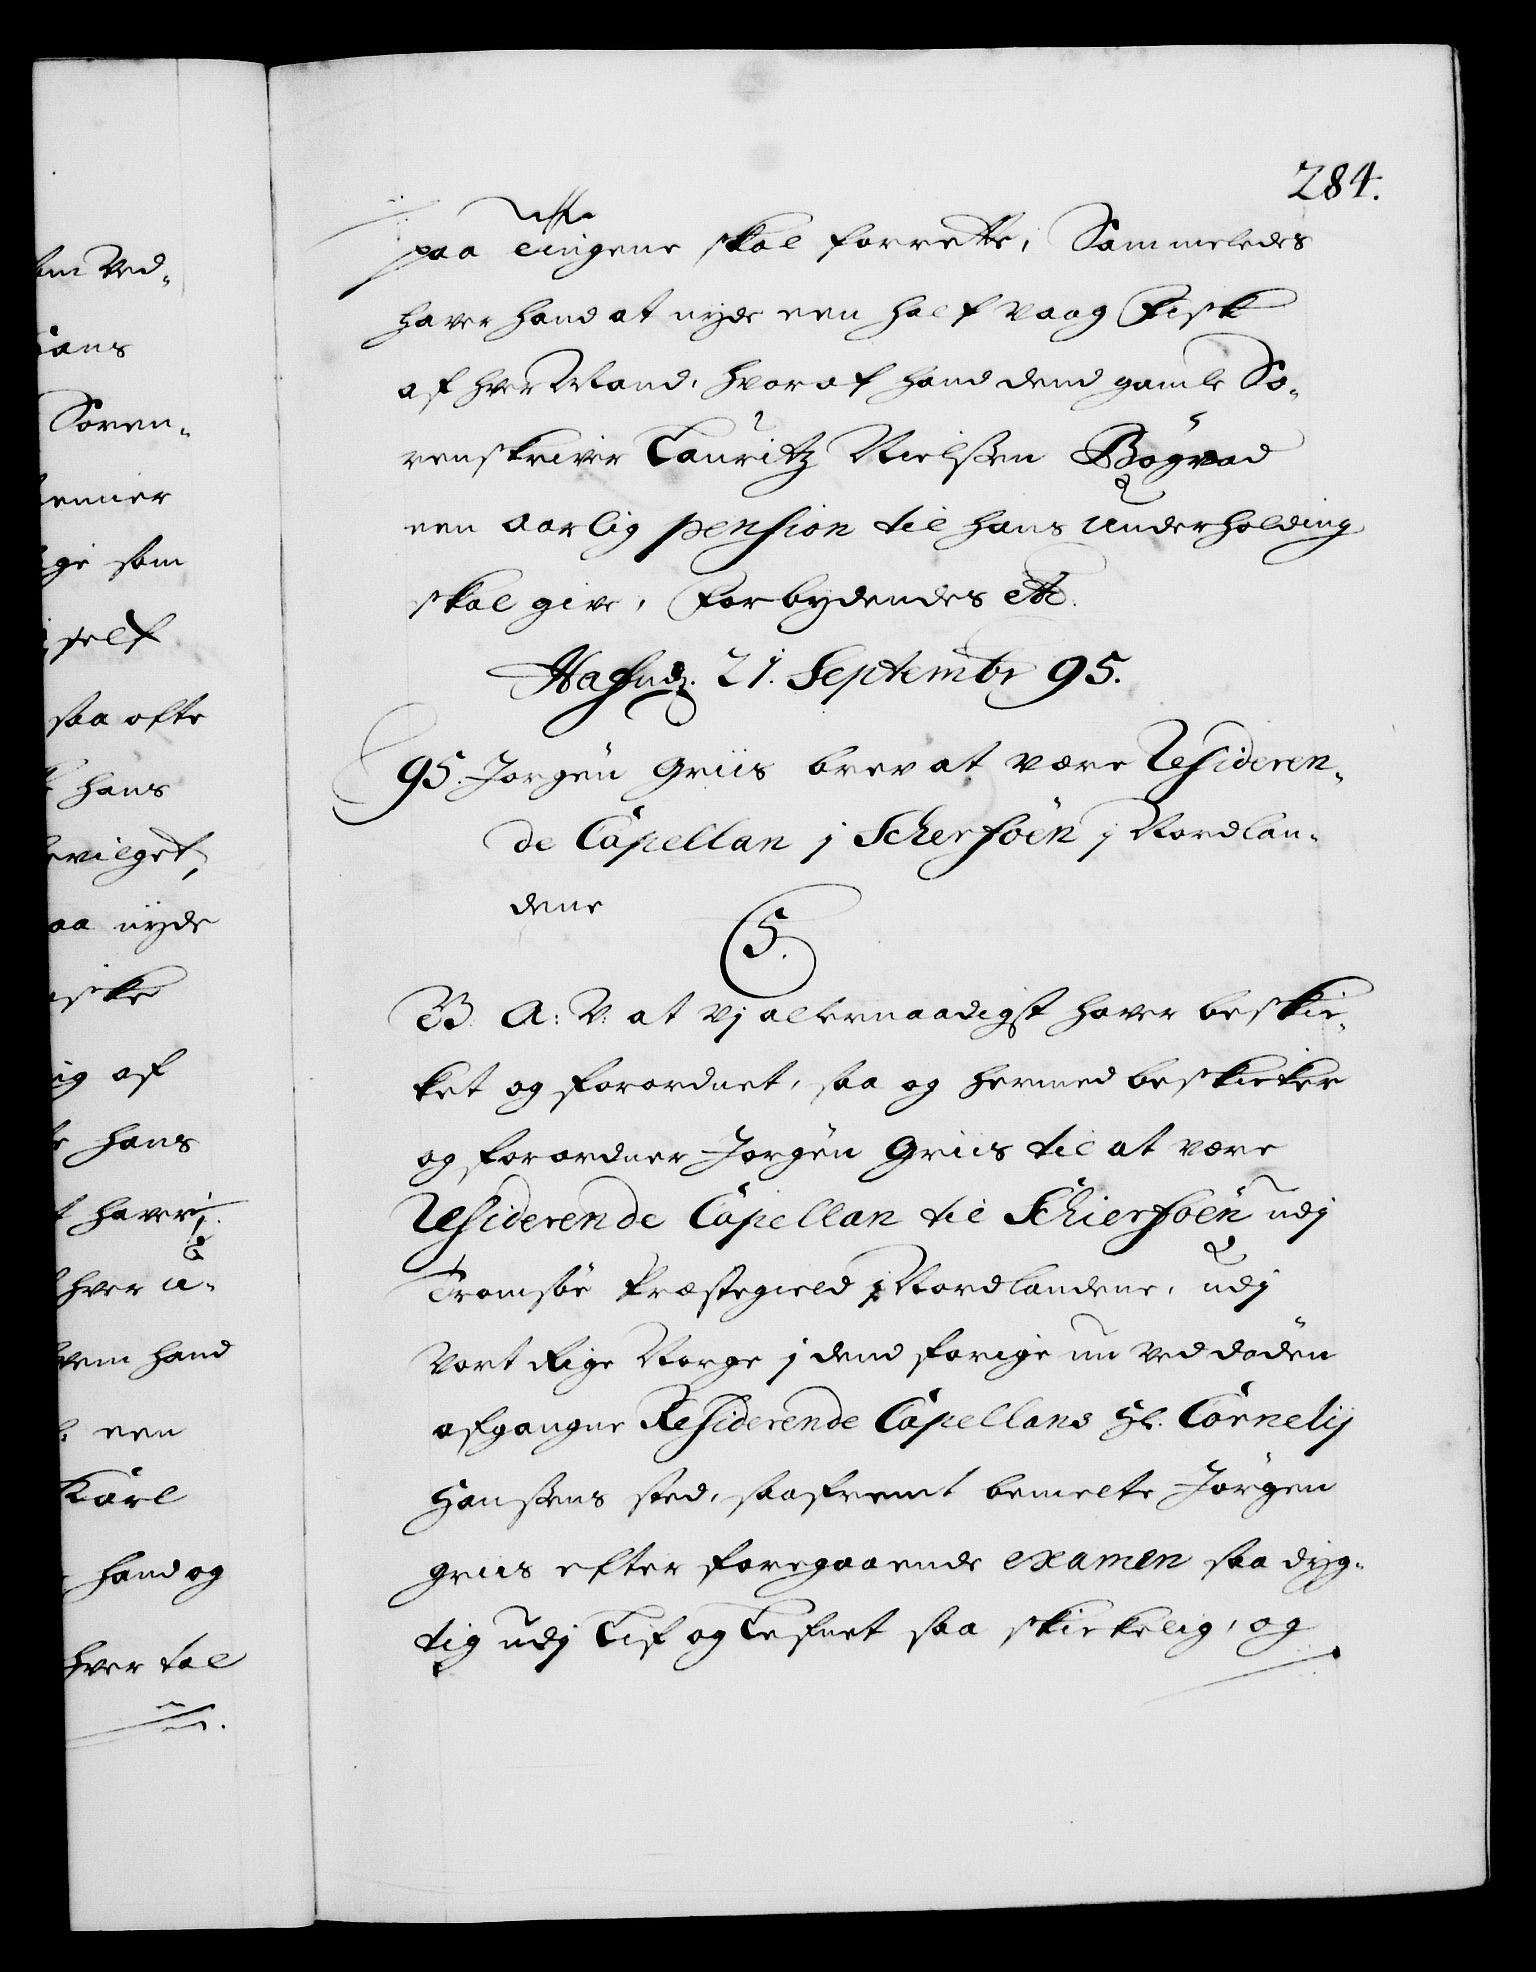 284.
paa tingene skal forrette, Sammeledes
haver hand at nyde een half vaag Fisk
af hver Mand, hvoraf hand dend gamle So-
renskriver Lauritz Nielssen Bögvad
een aarlig pension til hans underholding
skal give, Forbydendes etc.
Hafniæ. 21. Septembr 95.
95. Jorgen Griis brev at være Resideren-
de Capellan j Scherföen j Nordlan-
dene
5.
G. A: V: at Vj allernaadigst haver beskic-
ket og forordnet, saa og hermed beskicker
og forordner Jorgen Griis til at være
Residerende Capellan til Schierföen udj
Tromsöe Præstegield j Nordlandene, udj
Vort Rige Norge j dend forige nu ved döden
afgangne Residerende Capellans Hr. Cornelij
Hanssens sted, saafremt bemelte Jörgen
griis efter foregaaende examen saa dyg-
tig udj Lif og Lefnet saa skickelig, og
ved-
hans
Soren-
som
self
saa ofte
hans
bevilget,
nyde
af
hans
haver
hver u-
hand
een
Karl
hand og
hver tal